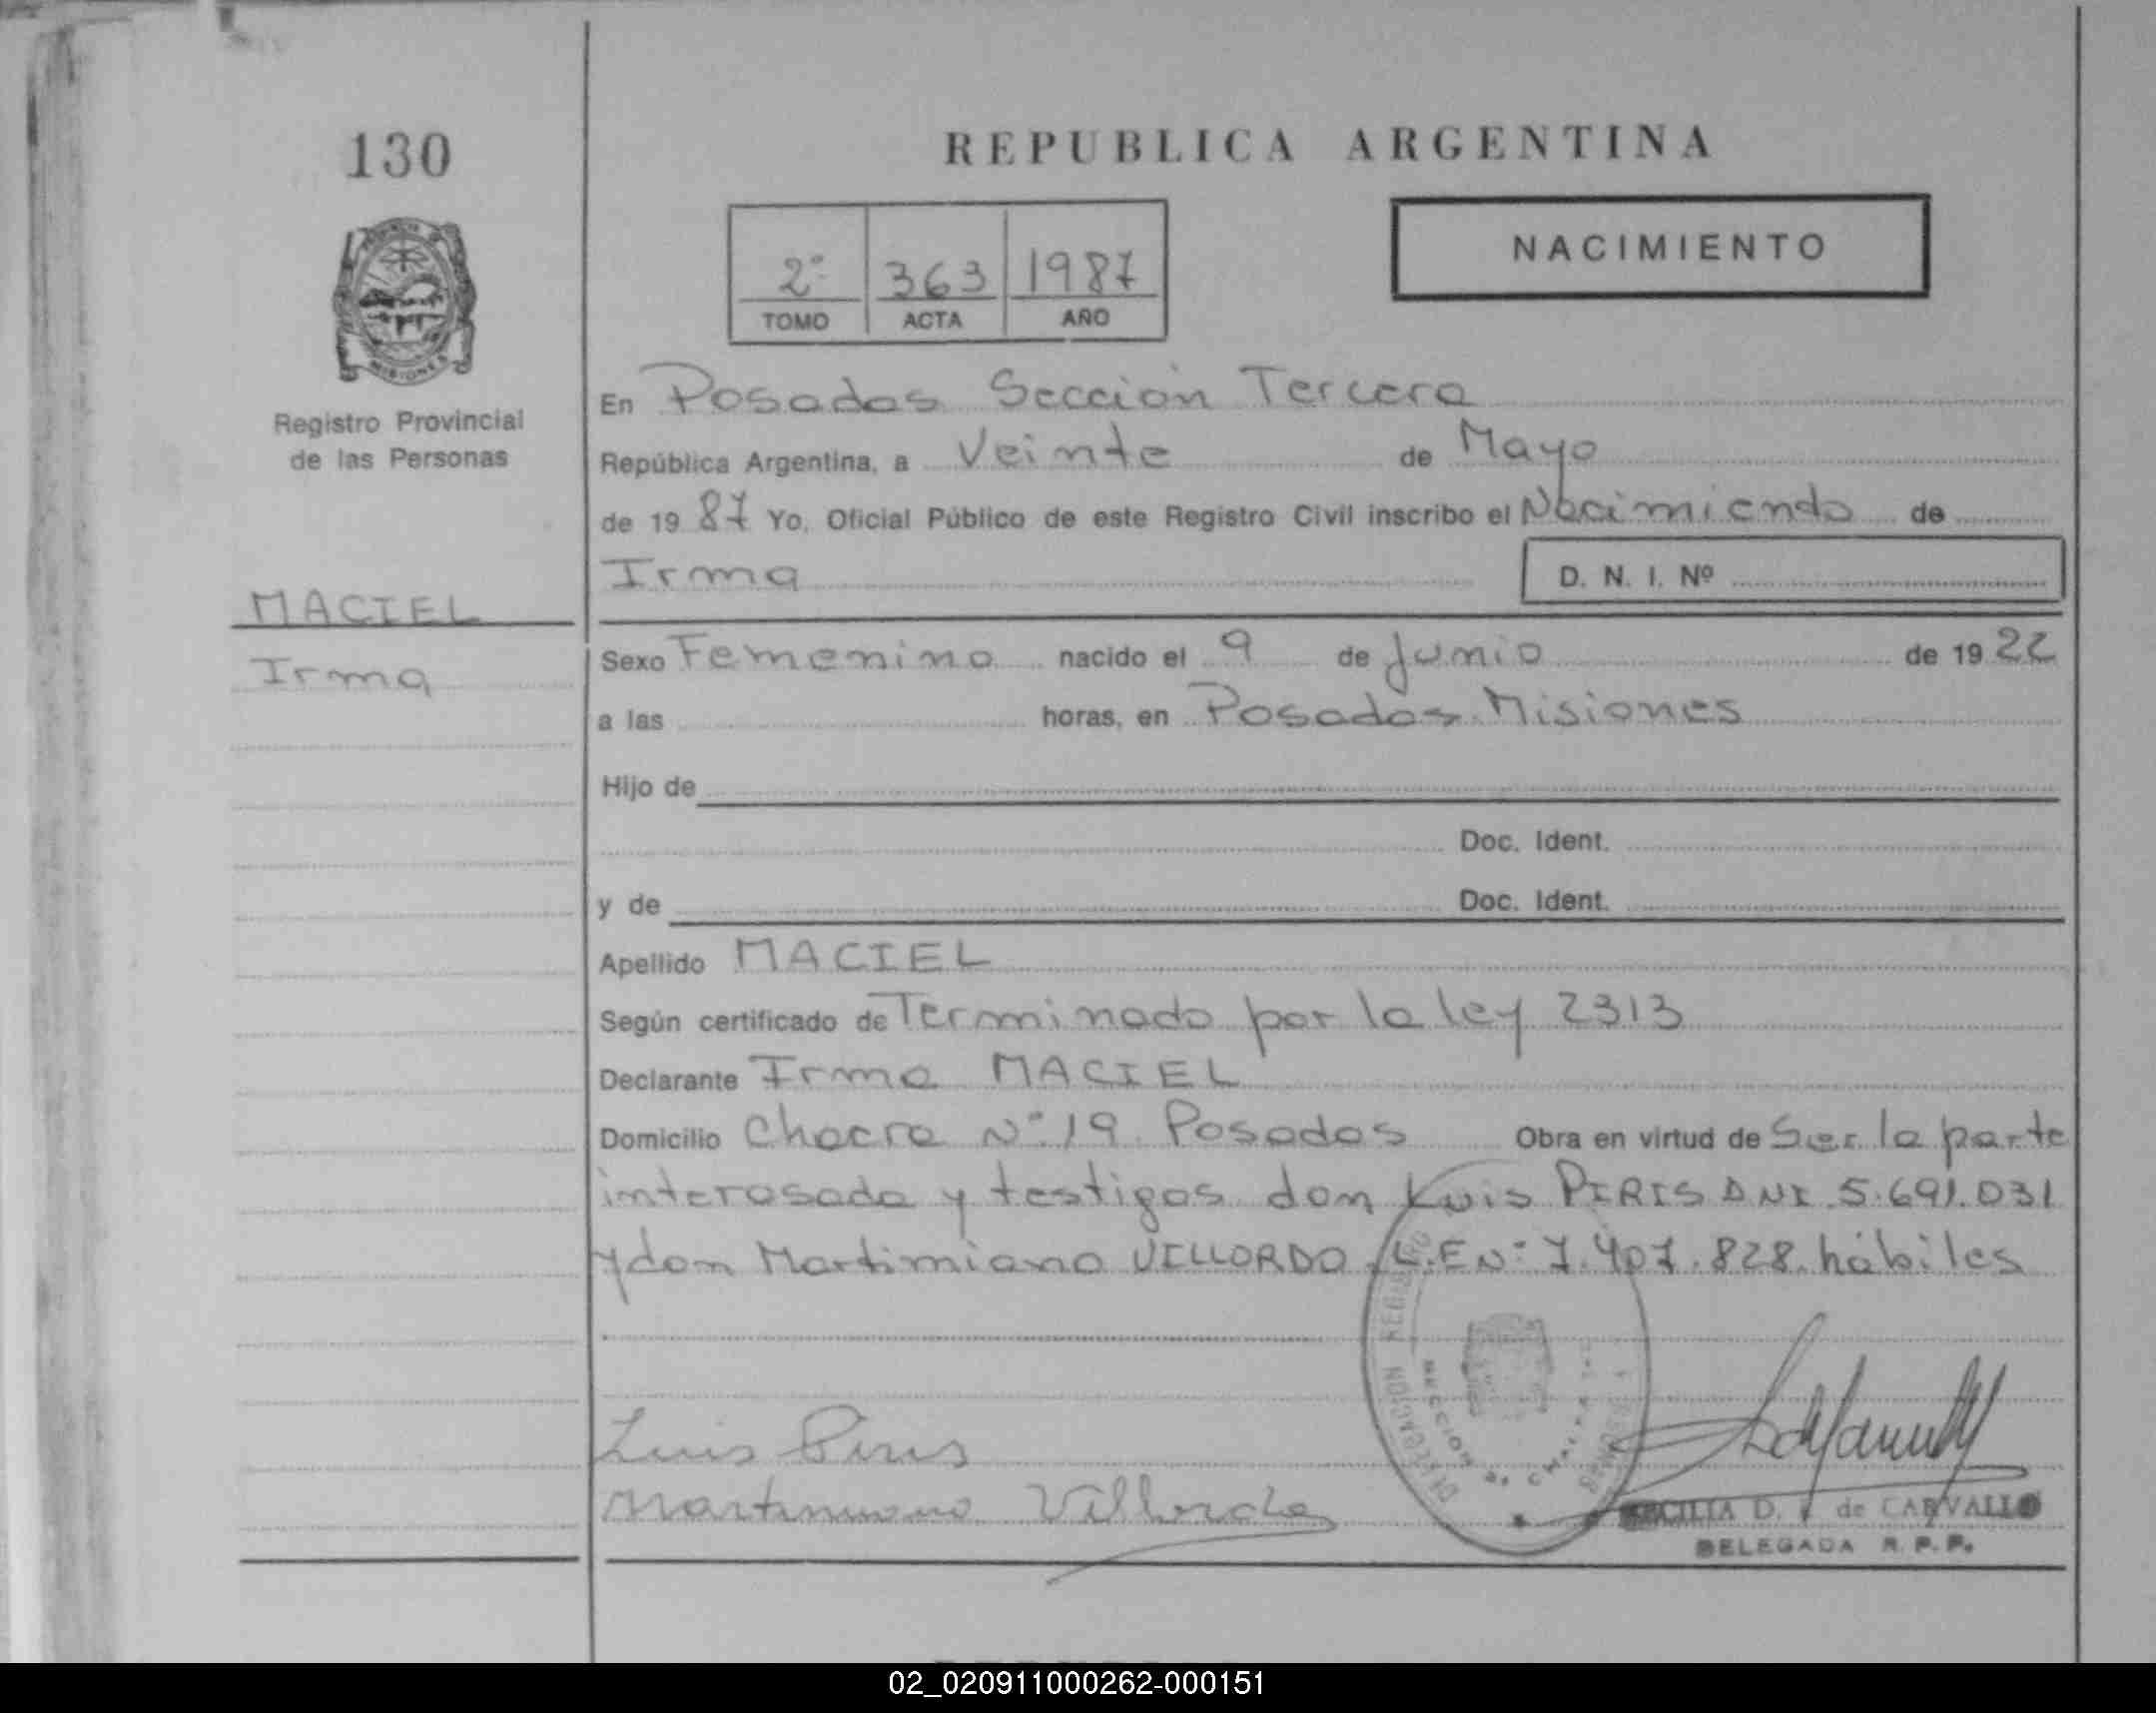 130
REPUBLICA ARGENTINA
NACIMIENTO
2º 363 1987
TOMO ACTA AÑO
MISIONES
Registro Provincial
de las Personas
MACIEL
Irma
En Posadas Sección Tercera
República Argentina, a Veinte de Mayo
de 1987 Yo, Oficial Público de este Registro Civil inscribo el Nacimiento de
Irma D. N. I. Nº
Sexo Femenino nacido el 9 de Junio de 1922
a las horas, en Posadas Misiones
Hijo de
Doc. Ident.
y de Doc. Ident.
Apellido MACIEL
Según certificado de Terminado por la ley 2313
Declarante Irma MACIEL
Domicilio Chacra Nº 19 Posadas Obra en virtud de Ser la parte
interosada y testigos don Luis PIRIS DNI 5.691.031
y don Martimiano VILLORDO L.E Nº 7.407.828 hábiles
Luis Piris
Martimiano Villordo
D. de CARVALLO
DELEGADA R. P. P.
02_020911000262-000151